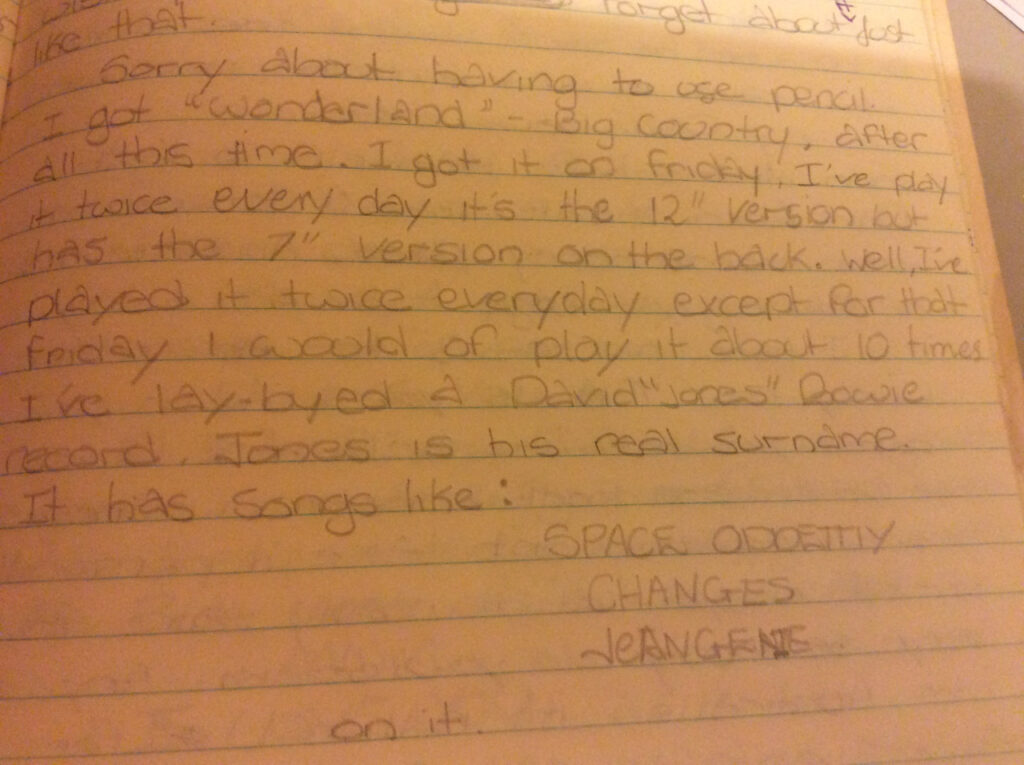 forget about just
like that.
Sorry about having to use pencil.
I got "Wonderland" - Big Country, after
all this time. I got it on friday, I've play
it twice every day it's the 12" version but
has the 7" version on the back. Well, I've
played it twice everyday except for that
friday I would of play it about 10 times
I've lay-byed a David "Jones" Bowie
record. Jones is his real surname.
It has songs like:
SPACE ODDEITIY
CHANGES
JeANGENIE
on it.